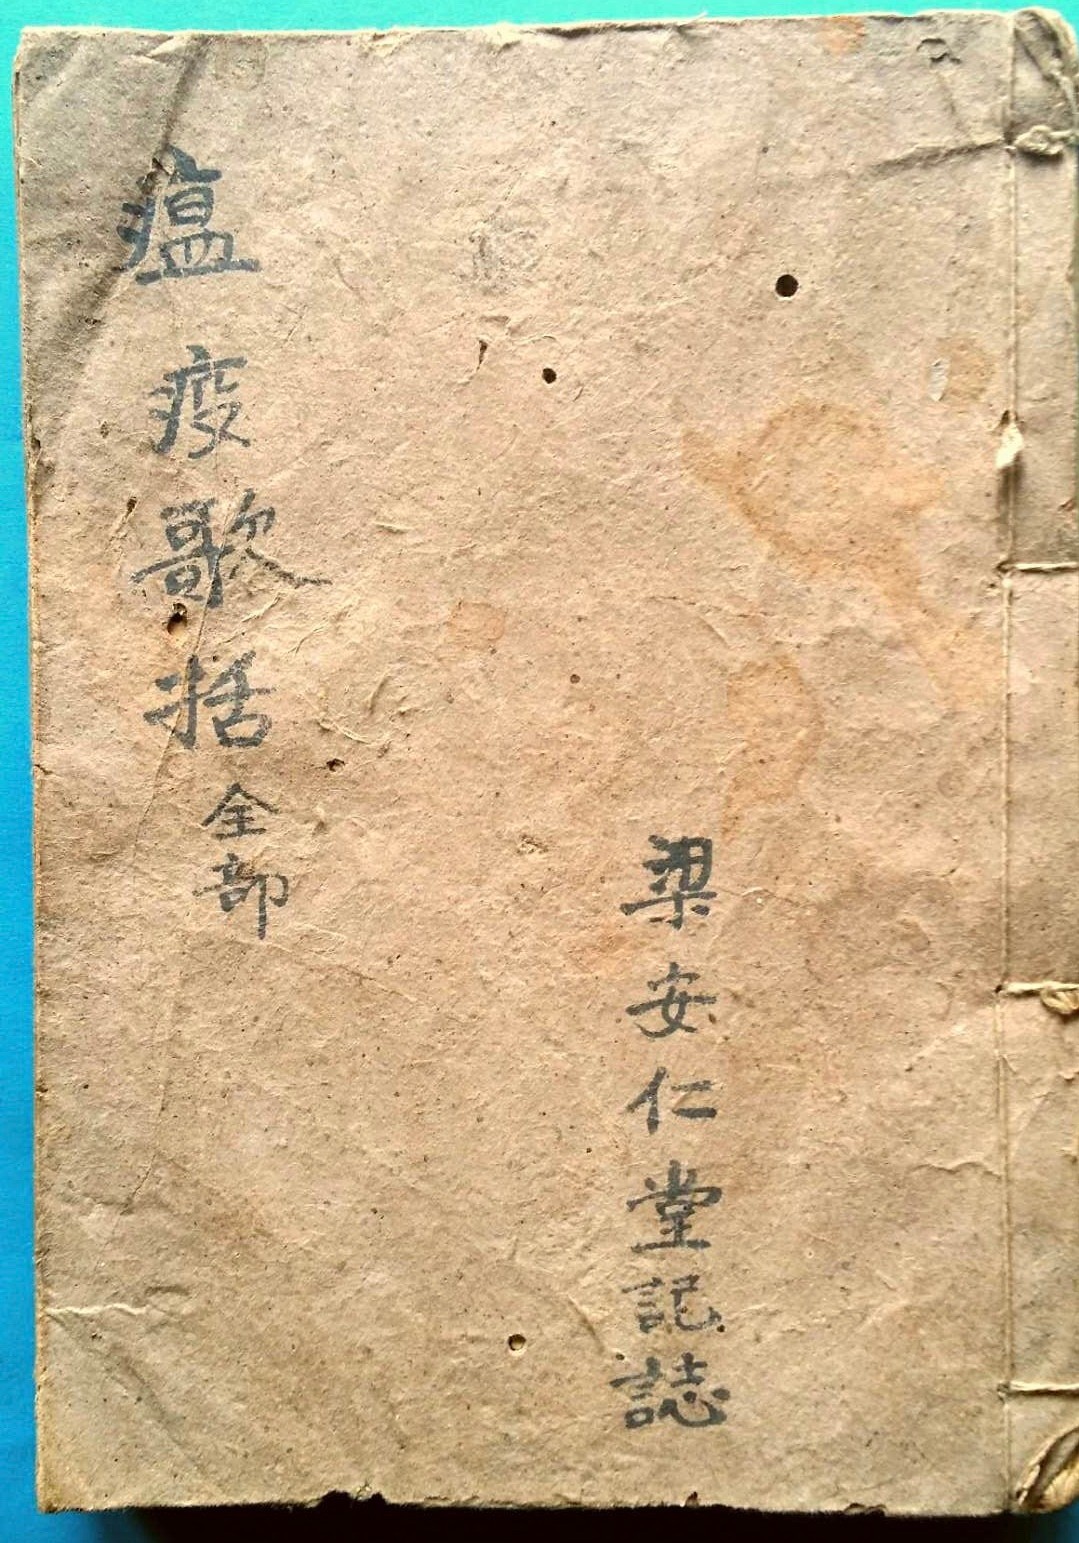 梁安仁堂記誌
瘟疫歌括全部